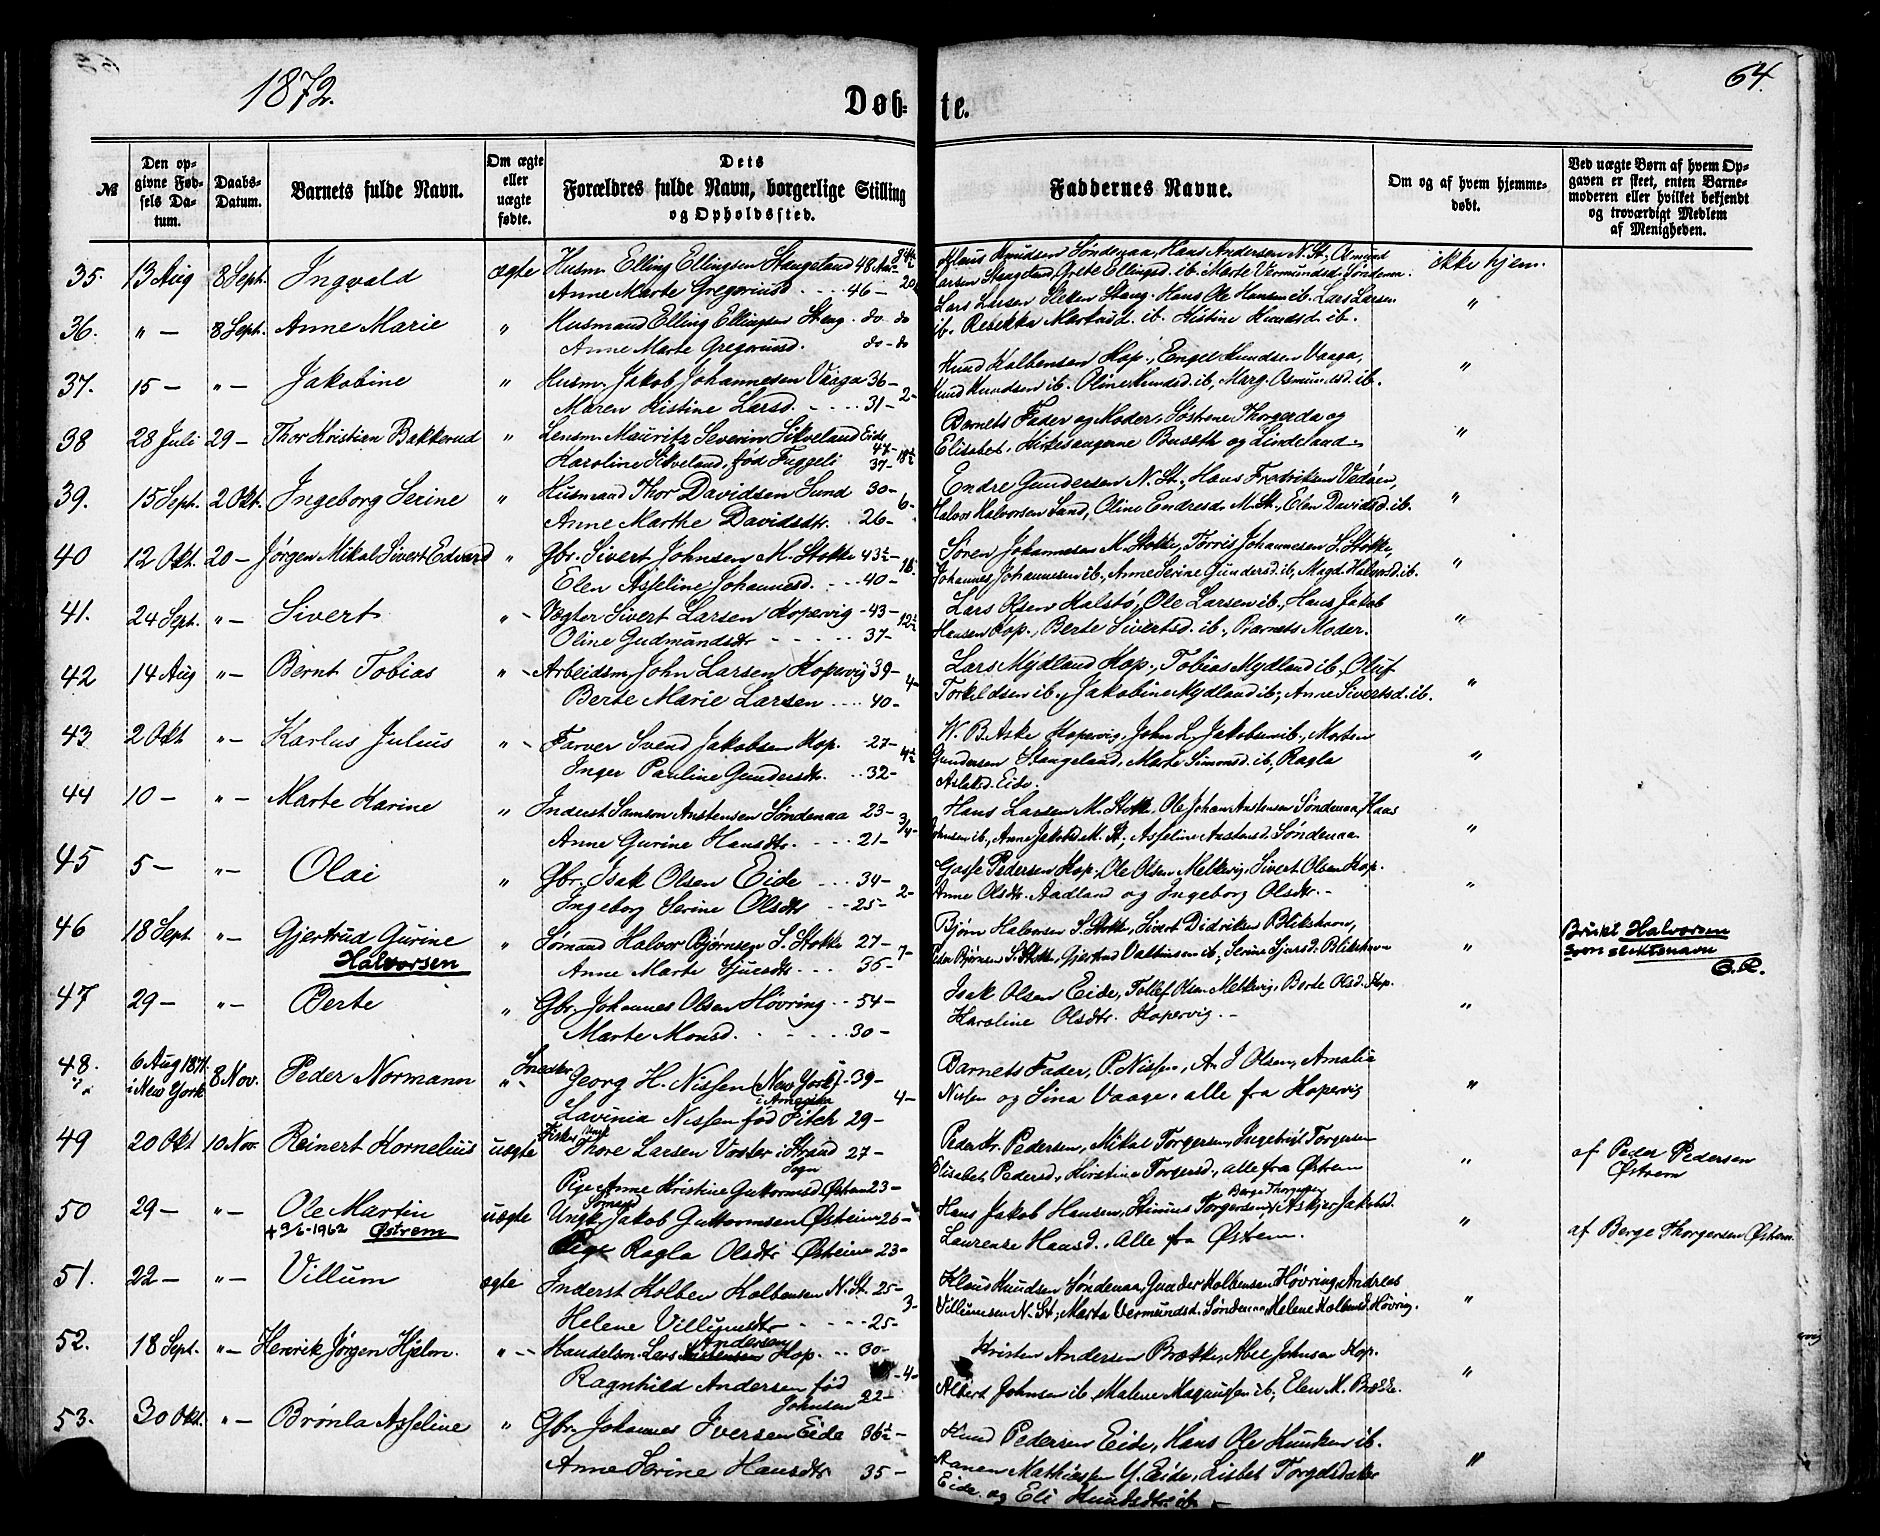 1872.
Døb-
te.
64.
№
Den op-
givne Fød-
sels Da-
tum.
Daabs-
Datum.
Barnets fulde Navn.
Om ægte
eller
uægte
fødte.
Dets
Forældres fulde Navn, borgerlige Stilling
og Opholdssted.
Faddernes Navne.
Om og af hvem hjemme-
døbt.
Ved uægte Børn af hvem Op-
gaven er skeet, enten Barne-
moderen eller hvilket bekjendt
og troværdigt Medlem
af Menigheden.
35. 13 Aug 8 Sept. Ingvald ægte Husm. Elling Ellingsen Stangeland 48
Anne Marte Gregoriusd. 46 -
Klaus Knudsen Søndenaa, Hans Andersen N. St., Osmund
Larsen Stangeland, Grete Ellingsd. ib. Marte Vermundsd. Søndenaa. ikke hjem.
36. " - 8 Sept. Anne Marie " Husmand Elling Ellingsen Stang. do - do
Anne Marte Gregoriusd. do - do
Lars Larsen Stang. Hans Ole Hansen ib. Lars Larsen
ib. Rebekka Markusd. ib. Kistine Knudsd. ib. "
37. 15 - " - Jakobine " Husm. Jakob Johannesen Vaaga 36 -
Maren Kistine Larsd. 31 - 2 -
Knud Kolbensen Kop., Engel Knudsen Vaaga,
Knud Knudsen ib. Oline Knudsd. ib, Marg. Osmundsd. ib. "
38 28 Juli 29 - Thor Kristian Bakkerud " Lensm. Mauritz Severin Sikveland Eide 47 -
Karoline Sikveland, fød Fuggeli 37 -
Barnets Fader og Moder, Søstrene Thorgerda og
Elisabet, Kirkesangerne Buseth og Lindeland - "
39. 15 Sept. 2 Okt. Ingeborg Serine " Husmand Thor Davidsen Sund 30 -
Anne Marthe Davidsdtr. 26 - 6 -
Endre Gundersen N. St., Hans Fredriksen Vedøen,
Halvor Halvorsen Sand, Oline Endresd. M. St., Elen Davidsd. ib. "
40 12 Okt. 20 - Jørgen Mikal Sivert Edvard " Gbr. Sivert Johnsen M. Stokke 43½ -
Elen Asseline Johannesd. 40 -
Søren Johannesen M. Stokke, Torris Johannesen S. Stokke,
Johannes Johannesen ib., Anne Serine Gundersd. ib., Magd. Halvorsd. ib. "
41. 24 Sept. " - Sivert " - Vægter Sivert Larsen Kopervig - 43 -
Oline Gudmundsdtr 37 - 12½
Lars Olsen Kalstø, Ole Larsen ib., Hans Jakob
Hansen Kop., Berte Sivertsd. ib., Barnets Moder. "
42 14 Aug " - Bernt Tobias " - Arbeidsm. John Larsen Kopervig 39 -
Berte Marie Larsen 40 - 4 -
Lars Mydland Kop., Tobias Mydland ib., Oluf
Torkildsen ib., Jakobine Mydland ib., Anne Sivertsd. ib. "
43 2 Okt " - Karlus Julius " - Farver Svend Jakobsen Kop. - 27 -
Inger Pauline Gundersdtr. 32 -
W. B. Aske Kopervig, John L. Jakobsen ib., Morten
Gundersen Stangeland, Marte Simonsd. ib., Ragla
Aslaksd. Eide. "
44 10 - " - Marte Karine " Inderst Samson Anstensen Søndenaa 23 -
Anne Gurine Hansdtr. 21 - 3/4 -
Hans Larsen M. Stokke. Ole Johan Anstensen Søndenaa, Hans
Johnsen ib., Anne Jakobsd. M. St., Asseline Anstensd. Søndenaa. "
45 5 - " - Olai " Gbr. Isak Olsen Eide 34 -
Ingeborg Serine Olsdtr 25 - 2 -
Gasse Pedersen Kop., Ole Olsen Melkevig, Sivert Olsen Kop.
Anne Olsdtr. Aadland og Ingeborg Olsdtr. - "
46 18 Sept " - Gjertrud Gurine
Halvorsen " Sømand Halvor Bjørnsen S. Stokke 27 -
Anne Marte 36 - 7 -
Bjørn S. Stokke, Sivert Didriksen Blikshavn,
Peder Bjørnsen S. Stokke, Gjertrud ib., Serine Blikshavn "
Brukt Halvorsen
som slektsnavn
47 29 - " - Berte " Gbr. Johannes Olsen Høvring 54 -
Marte Monsd. 30 -
Isak Olsen Eide, Tollef Olsen Melkevig, Berte Olsd. Kop.
Karoline Olsdtr. Kopervig. - "
48. 6 Aug 1871.
i New York 8 Nov. Peder Normann " - Snedker Georg H. Nissen (New York) 39 -
i Amerika
Lavinia Nissen fød Fitch 29 - 4 -
Barnets Fader, P. Nissen, A. J Olsen, Amalia
Nissen og Sina Vaage, alle fra Kopervig "
49 20 Okt 10 Nov. Reinert Kornelius uægte Fisker Ungk. Thore Larsen Voster i Strand
Sogn 27 -
Pige Anne Kristine Guttormsd. Østrem 23 -
Peder Kr. Pedersen, Mikal Torgersen, Ingebrigt Torgersen
Elisabet Pedersd., Kirstine Torgersd., alle fra Østrem "
af Peder Pedersen
Østrem
50 29 - " - Ole Martin
+ 9/6-1962 Østrem uægte Ungk. Sømand Jakob Guttormsen Østrem 26 -
Pige Ragla Olsdtr Østrem 23 -
Hans Jakob Hansen, Torgersen, Berge Thorgersen, Askjer Jakobsd.
Laurense Hansd. Alle fra Østrem. "
af Berge Thorgersen Østrem.
51. 22 - " - Villum ægte Inderst Kolben Kolbensen N. St. 25 -
Helene Villumsdtr 25 - 3 -
Klaus Knudsen Søndenaa, Gunder Kolbensen Høvring, Andreas
Villumsen N. St., Marta Vermundsd. Søndenaa, Helene Kolbensd. Høvring. "
52. 18 Sept. " - Henrik Jørgen Hjelm. " - Handelsm. Lars Andersen Kop. 30 -
Ragnhild Andersen fød
Johnsen 22 - 4 -
Kristen Andersen Brække, Abel Johnsen Kop.
Albert Johnsen ib., Malene Magnussen ib., Elen M. Brække. "
53. 30 Okt. " - Brønla Asseline " Gbr. Johannes Iversen Eide 36½ -
Anne Serine Hansdtr 35 -
Knud Pedersen Eide, Hans Ole Knutsen ib.
Aanen Mathiassen Y. Eide, Lisbet Torgelsdatter
Eide. og Eli Knudsdtr. ib. - "